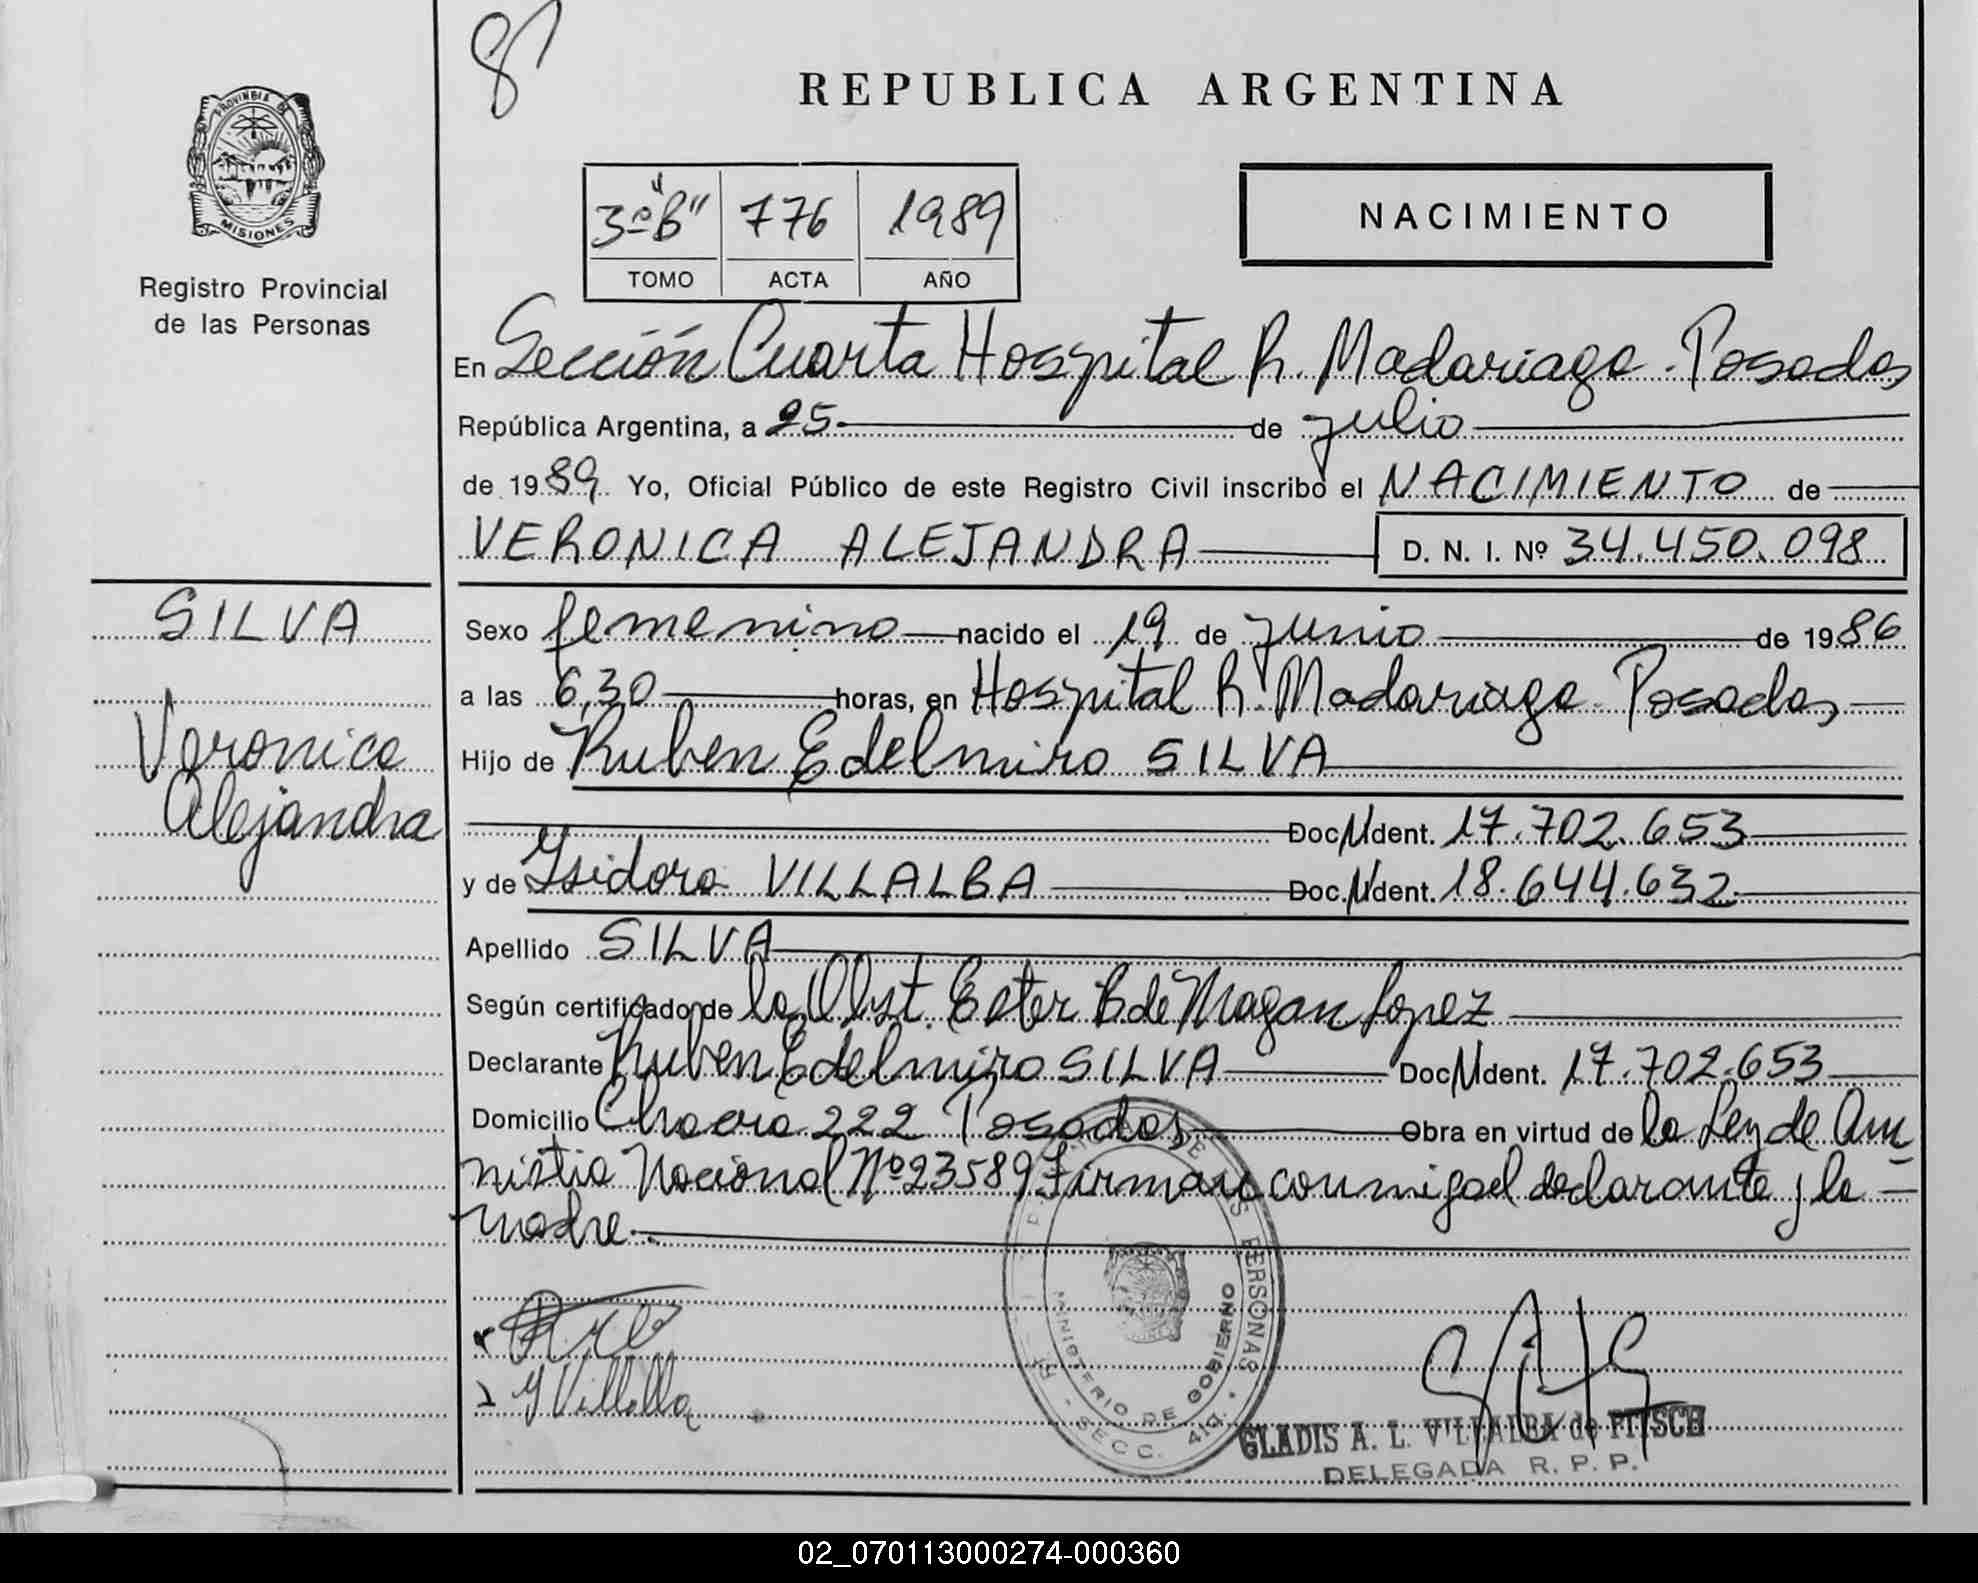 8
REPUBLICA ARGENTINA
PROVINCIA DE
MISIONES
Registro Provincial
de las Personas
3º "B" 776 1989
TOMO ACTA AÑO
NACIMIENTO
En Sección Cuarta Hospital R. Madariaga. Posadas
República Argentina, a 25 de julio
de 1989. Yo, Oficial Público de este Registro Civil inscribo el NACIMIENTO de
VERONICA ALEJANDRA D. N. I. Nº 34.450.098
SILVA
Veronica
Alejandra
Sexo femenino nacido el 19 de junio de 1986
a las 6,30 horas, en Hospital R. Madariaga. Posadas
Hijo de Ruben Edelmiro SILVA
Doc. Ident. 17.702.653
y de Ysidora VILLALBA Doc. Ident. 18.644.632
Apellido SILVA
Según certificado de la Obst. Ester B de Magan Lopez
Declarante Ruben Edelmiro SILVA Doc. Ident. 17.702.653
Domicilio Chacra 222 Posadas Obra en virtud de la Ley de Am
nistia Nacional Nº 23589 Firman conmigo el declarante y la
madre.
Y Villalba
DE LAS PERSONAS
MINISTERIO DE GOBIERNO
SECC. 4ta.
GLADIS A. L. VILLALBA de FITSCH
DELEGADA R. P. P.
02_070113000274-000360